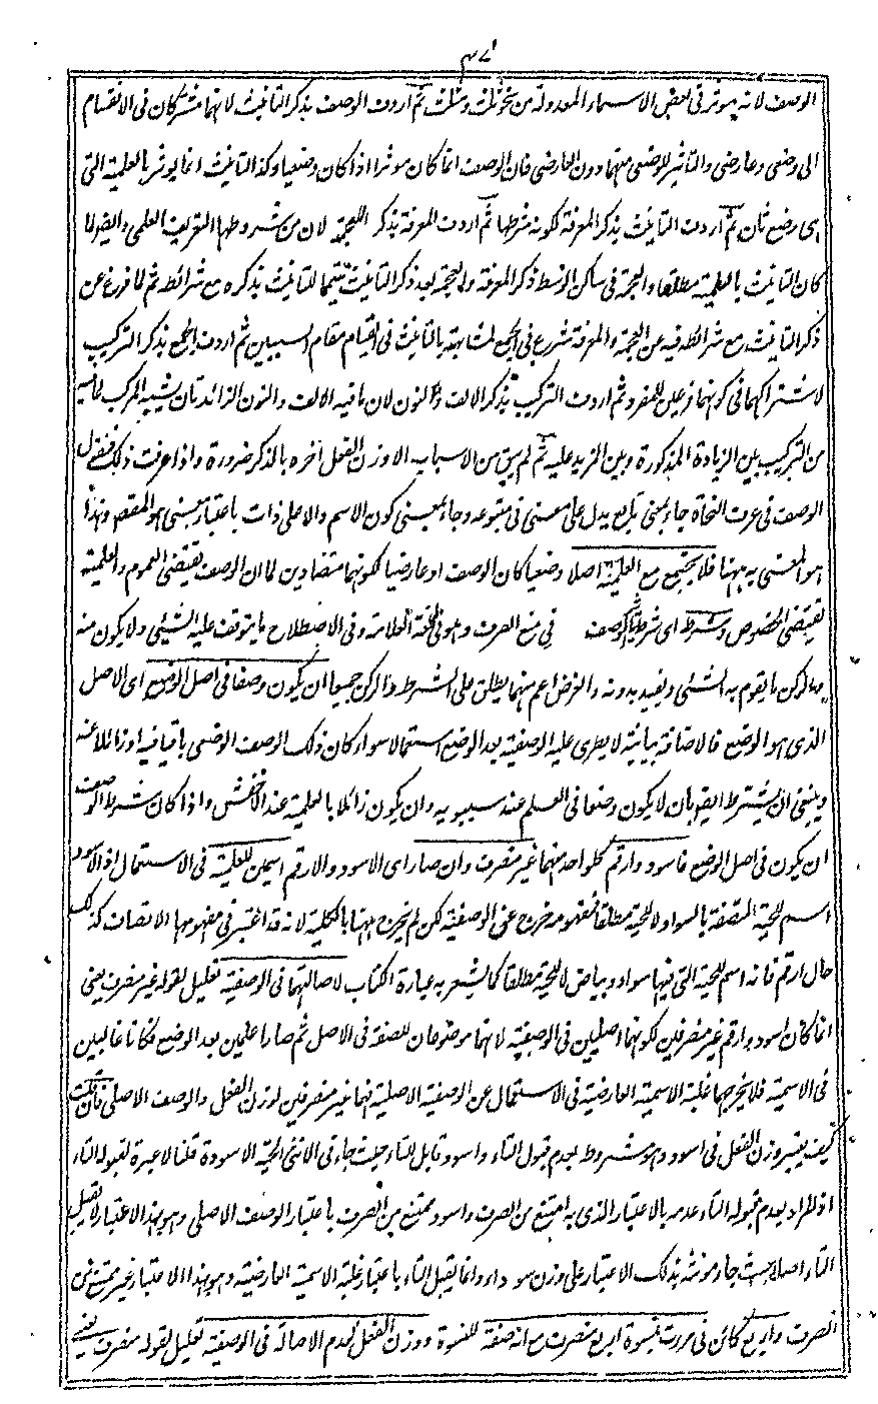 ٣٧
الوصف لانه يوثر فى بعض الاسماء المعدولة من نحو ثلث ومثلث ثم اردف الوصف بذكر التانيث لانهما مشتركان فى الانقسام
الى وضعى وعارضى والتاثير للوضعى منهما دون العارضى فان الوصف انما كان موثرا اذا كان وضعيا وكذا التانيث انما يوثر بالعلمية التى
هى وضع ثان ثم اردف التانيث بذكر المعرفة لكونه شرطها ثم اردف المعرفة بذكر العجمة لان من شروطها التعريف العلمى وايضا لما
كان التانيث بالعلمية مطلقا والعجمة فى ساكن الاوسط ذكر المعرفة والعجمة بعد ذكر التانيث تتميما للتانيث بذكره مع شرائطه ثم لما فرغ عن
ذكر التانيث مع شرائطه فيه عن العجمة والمعرفة شرع فى الجمع لمشابهته بالتانيث فى القيام مقام السببين ثم اردف الجمع بذكر التركيب
لاشتراكهما فى كونهما فرعين للمفرد ثم اردف التركيب بذكر الالف والنون لان ما فيه الالف والنون الزائدتان يشبه المركب لما فيه
من التركيب بين الزيادة المذكورة وبين المزيد عليه ثم لم يبق من الاسباب الا وزن الفعل اخره بالذكر ضرورة واذا عرفت ذلك فنقول
الوصف فى عرف النحاة جاء بمعنى تابع يدل على معنى فى متبوعه وجاء بمعنى كون الاسم دالا على ذات باعتبار معنى هو المقصود وهذا
هو المعنى به ههنا فلا يجتمع مع العلمية اصلا وضعيا كان الوصف او عارضيا لكونهما متضادين لما ان الوصف يقتضى العموم والعلمية
تقتضى الخصوص وشرطه اى شرط تاثير الوصف فى منع الصرف وهو فى اللغة العلامة وفى الاصطلاح ما يتوقف عليه الشيئى ولا يكون منه
والركن ما يقوم به الشيئى ويفيد بدونه والفرض اعم منهما يطلق على الشرط والركن جميعا ان يكون وصفا فى اصل الوضع اى الاصل
الذى هو الوضع فالاضافة بيانية لا يطرى عليه الوصفية بعد الوضع استعمالا سواء كان ذلك الوصف الوضعى باقيا فيه او زائلا عنه
وينبغى ان يشترط ايضا بان لا يكون وضعا فى العلم عند سيبويه وان يكون زائلا بالعلمية عند الاخفش واذا كان شرط الوصف
ان يكون فى اصل الوضع فاسود وارقم كل واحد منهما غير منصرف وان صار اى الاسود والارقم اسمين للحية فى الاستعمال اذ الاسود
اسم للحية المتصفة بالسواد لا للحية مطلقا فمفهومه خرج عن الوصفية لكن لم يخرج منها بالكلية لانه قد اعتبر فى مفهومها الاتصاف كذلك
حال ارقم فانه اسم للحية التى فيها سواد وبياض لا للحية مطلقا كما يشعر به عبارة الكتاب لاصالتهما فى الوصفية تعليل لقوله غير منصرف يعنى
انما كان اسود وارقم غير منصرفين لكونهما اصليين فى الوصفية لانهما موضوعان للصفة فى الاصل ثم صارا علمين بعد الوضع فكانا غالبين
فى الاسمية فلا يخرجهما غلبة الاسمية العارضية فى الاستعمال عن الوصفية الاصلية فهما غير منصرفين لوزن الفعل والوصف الاصلى فان قلت
كيف يعتبر وزن الفعل فى اسود وهو مشروط بعدم قبول التاء واسود قابل للتاء حيث جاء فى الانثى الحية الاسودة قلنا لا عبرة لقبوله التاء
اذ المراد بعدم قبوله التاء عدمه بالاعتبار الذى به امتنع من الصرف واسود ممتنع من الصرف باعتبار الوصف الاصلى وهو بهذا الاعتبار لا يقبل
التاء اصلا حيث جاء مونثه بذلك الاعتبار على وزن سوداء وانما يقبل التاء باعتبار غلبة الاسمية العارضية وهو بهذا الاعتبار غير ممتنع من
الصرف واربع كائن فى مررت بنسوة اربع منصرف مع انه صفة للنسوة ووزن الفعل لعدم الاصالة فى الوصفية تعليل لقوله منصرف يعنى